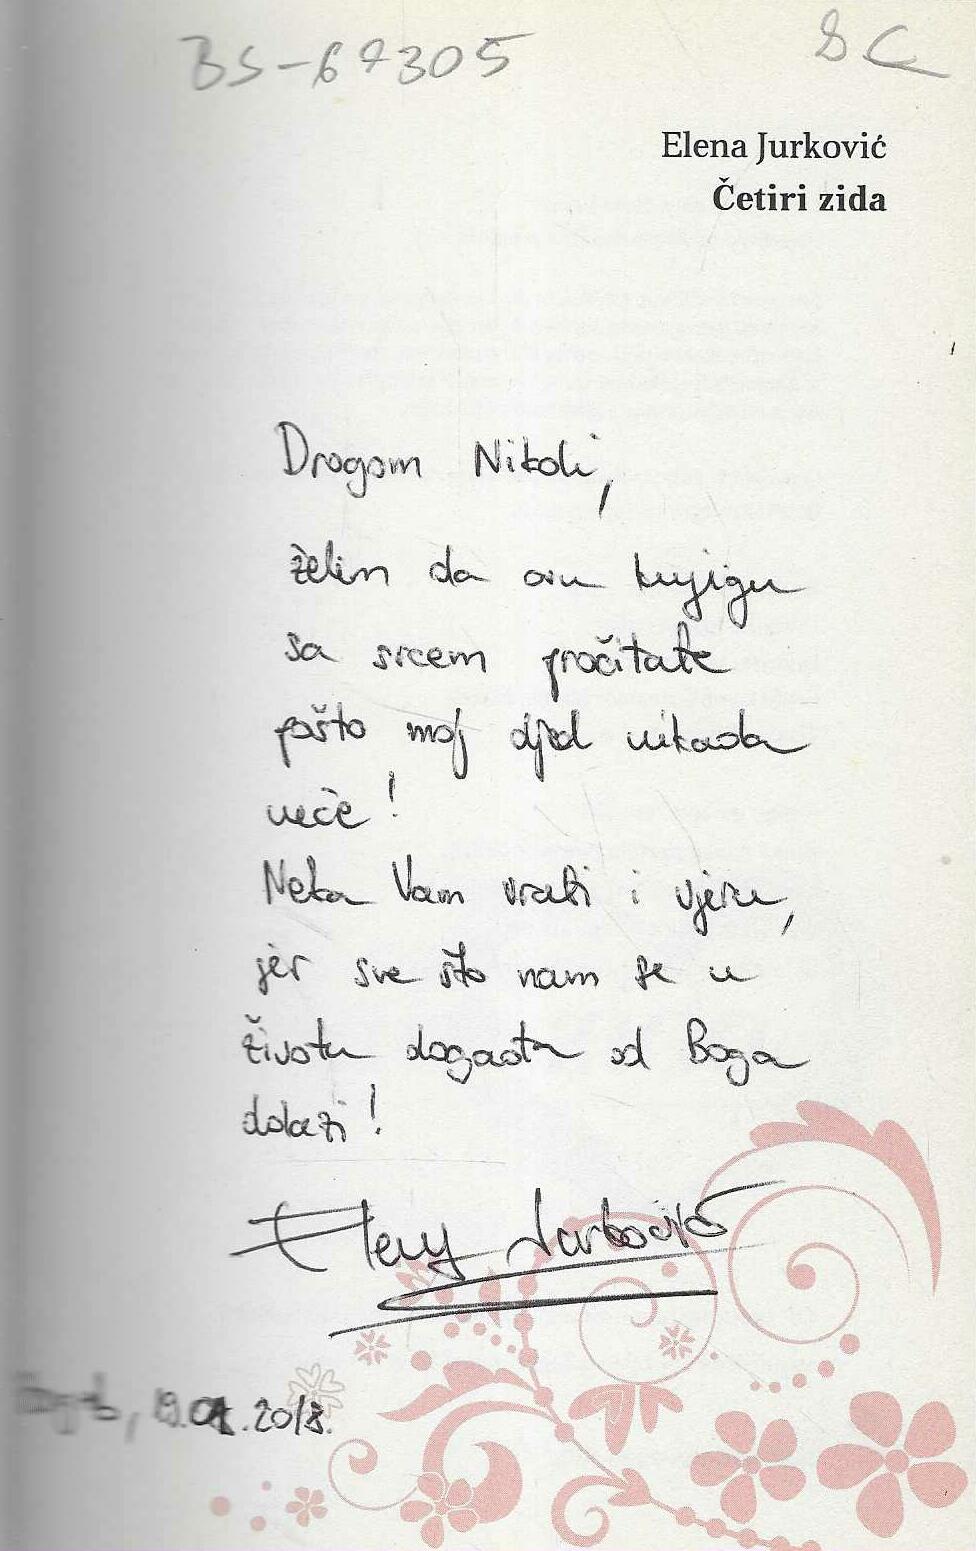 BS-67305
SC
Elena Jurković
Četiri zida
Dragom Nikoli,
želim da ovu knjigu
sa srcem pročitate
pošto moj djed nikada
neće!
Neka Vam vrati i vjeru,
jer sve što nam se u
životu događa od Boga
dolazi!
Elena Jurković
2018.